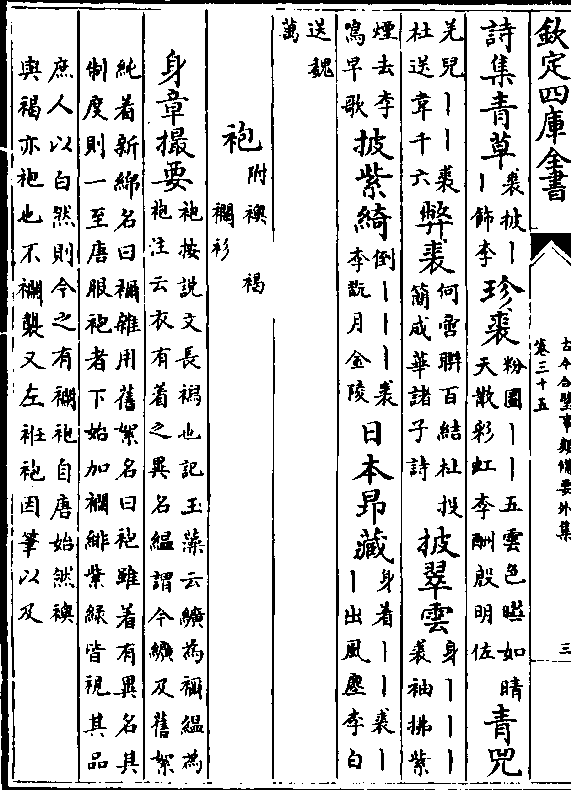 欽定四庫全書
古今合璧事類備要外集
卷三十五
三
詩集青草裘披丨丨飾李珍裘粉圖丨丨五雲色曄如晴天散彩虹李酬殷明佐青兕
羌兒丨丨裘杜送韋千六弊裘何啻聯百結杜投簡咸華諸子詩披翠雲身丨丨丨裘袖拂紫
煙去李鳴早歌披紫綺倒丨丨丨裘李翫月金陵日本昂藏身着丨丨裘丨丨出風塵李白
送魏萬
袍附襖褐襴衫
身章撮要袍按説文長襦也記玉藻云纊為襺緼為袍注云衣有着之異名緼謂今纊及舊絮
純着新綿名曰襺雜用舊絮名曰袍雖着有異名其制度則一至唐服袍者下始加襴緋紫緑皆視其品
庶人以白然則今之有襴袍自唐始然襖與褐亦袍也不襴襲又左衽袍因筆以及